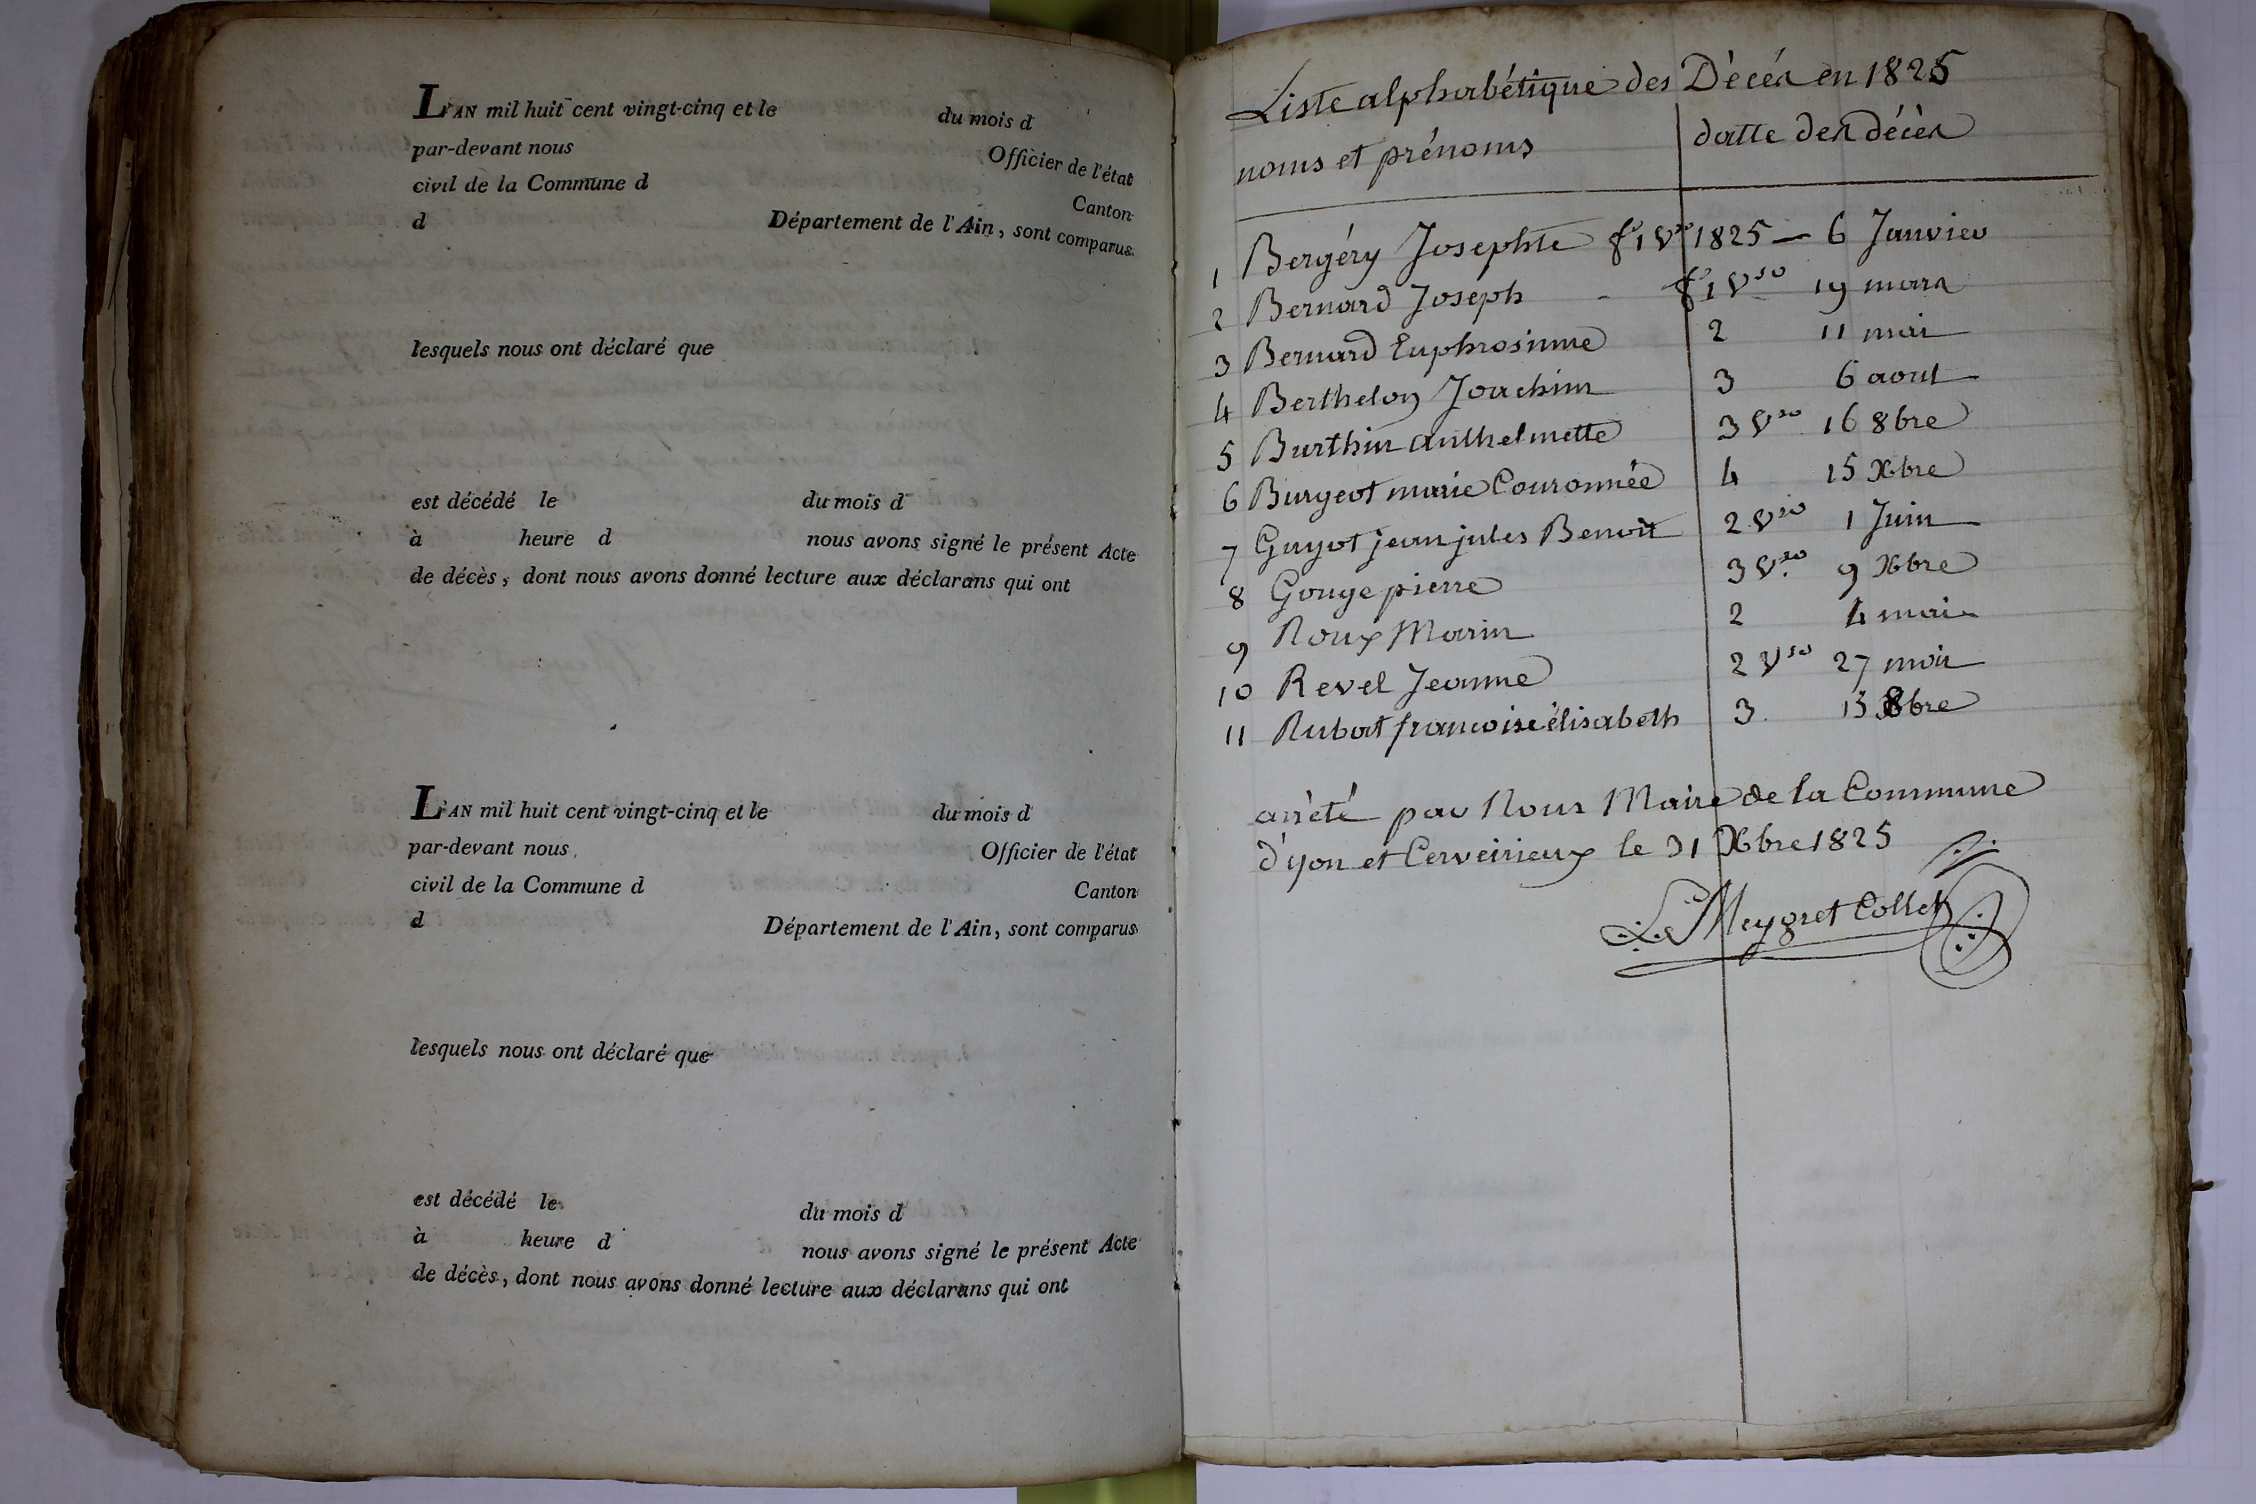 L'AN mil huit cent vingt-cinq et le du mois d
par-devant nous Officier de l'état
civil de la Commune d Canton
d Département de l'Ain, sont comparus
lesquels nous ont déclaré que
est décédé le du mois d
à heure d nous avons signé le présent Acte
de décès, dont nous avons donné lecture aux déclarans qui ont
L'AN mil huit cent vingt-cinq et le du mois d
par-devant nous Officier de l'état
civil de la Commune d Canton
d Département de l'Ain, sont comparus
lesquels nous ont déclaré que
est décédé le du mois d
à heure d nous avons signé le présent Acte
de décès, dont nous avons donné lecture aux déclarans qui ont
Liste alphabétique des Décés en 1825
noms et prénoms datte des décès
1 Bergéry Josephte f° 1 Vso 1825 — 6 Janvier
2 Bernard Joseph - f° 1 Vso 19 mars
3 Bernard Euphrosinne 2 11 mai
4 Berthelon Joachim 3 6 aout
5 Burthin anthelmette 3 Vso 16 8bre
6 Burgeot marie Couronnée 4 15 Xbre
7 Guyot jean jules Benoit 2 Vso 1 Juin
8 Gouge pierre 3 Vso 9 Xbre
9 Roux Marin 2 4 mai
10 Revel Jeanne 2 Vso 27 mai
11 Rubat francoise élisabeth 3 13 8bre
arrêté par Nous Maire de la Commune
d'yon et Cerveirieux le 31 Xbre 1825
Le Meygret Collet